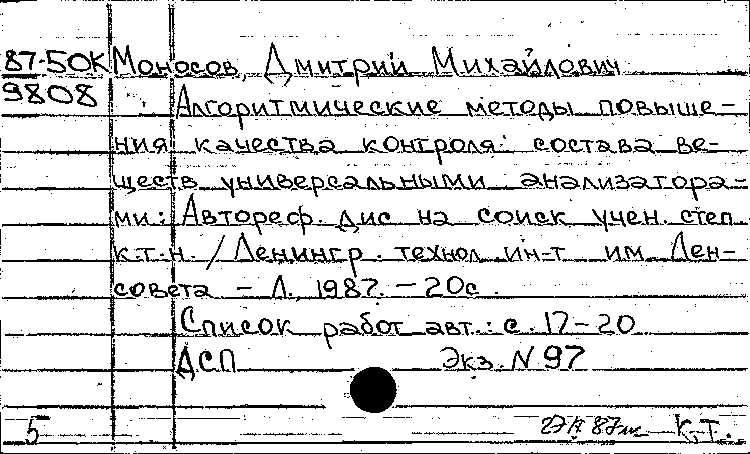 87-50К Моносов, Дмитрий Михайлович
9808 Алгоритмические методы повыше-
ния качества контроля состава ве-
ществ универсальными анализатора-
ми: Автореф. дис на соиск учен. степ.
к.т.н. / Ленингр. технол. ин-т им Лен-
совета - Л., 1987. - 20с.
Список работ авт.: с. 17-20
ДСП Экз. N 97
5 87 К.Т.